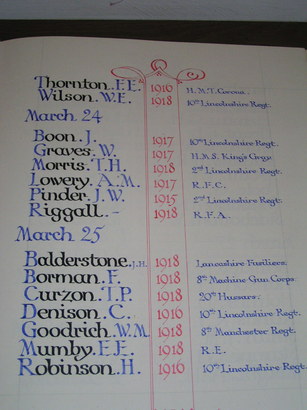 Thornton. F.E. 1916 H.M.T. Cocona.
Wilson. W.E. 1918 10th Lincolnshire Regt.
March 24
Boon. J. 1917 10th Lincolnshire Regt.
Graves. W. 1917 H.M.S. King's Grey.
Morris. T.H. 1918 2nd Lincolnshire Regt.
Lowery. A.M. 1917 R.F.C.
Pinder. J.W. 1915 2nd Lincolnshire Regt.
Riggall. - 1918 R.F.A.
March 25
Balderstone. J.H. 1918 Lancashire Fusiliers.
Borman. F. 1918 8th Machine Gun Corps.
Curzon. T.P. 1918 20th Hussars.
Denison. C. 1916 10th Lincolnshire Regt.
Goodrich. W.M. 1918 8th Manchester Regt.
Mumby. F.E. 1918 R.E.
Robinson. H. 1916 10th Lincolnshire Regt.